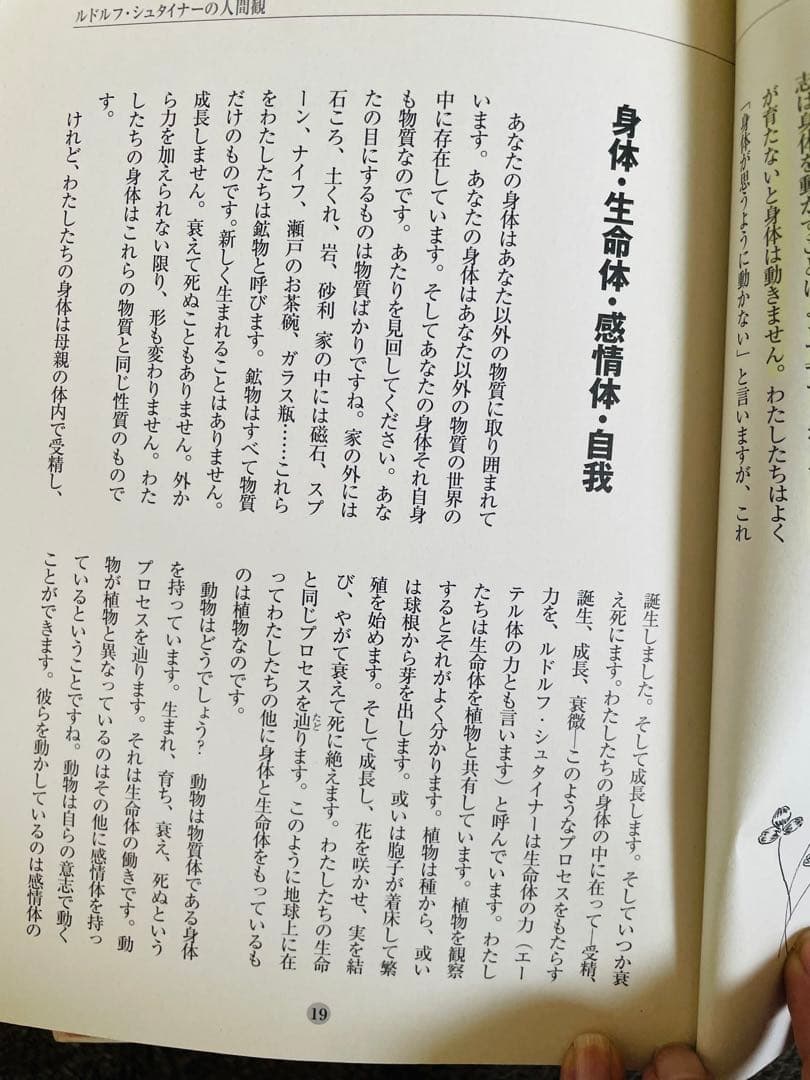 志は身体を動かすことによって
が育たないと身体は動きません。わたしたちはよく
「身体が思うように動かない」と言いますが、これ
ルドルフ・シュタイナーの人間観
身体・生命体・感情体・自我
あなたの身体はあなた以外の物質に取り囲まれて
います。あなたの身体はあなた以外の物質の世界の
中に存在しています。そしてあなたの身体それ自身
も物質なのです。あたりを見回してください。あな
たの目にするものは物質ばかりですね。家の外には
石ころ、土くれ、岩、砂利 家の中には磁石、スプ
ーン、ナイフ、瀬戸のお茶碗、ガラス瓶……これら
をわたしたちは鉱物と呼びます。鉱物はすべて物質
だけのものです。新しく生まれることはありません。
成長しません。衰えて死ぬこともありません。外か
ら力を加えられない限り、形も変わりません。わた
したちの身体はこれらの物質と同じ性質のもので
す。
けれど、わたしたちの身体は母親の体内で受精し、
誕生しました。そして成長します。そしていつか衰
え死にます。わたしたちの身体の中に在って―受精、
誕生、成長、衰微―このようなプロセスをもたらす
力を、ルドルフ・シュタイナーは生命体の力（エー
テル体の力とも言います）と呼んでいます。わたし
たちは生命体を植物と共有しています。植物を観察
するとそれがよく分かります。植物は種から、或い
は球根から芽を出します。或いは胞子が着床して繁
殖を始めます。そして成長し、花を咲かせ、実を結
び、やがて衰えて死に絶えます。わたしたちの生命
と同じプロセスを辿ります。このように地球上に在
たど
ってわたしたちの他に身体と生命体をもっているも
のは植物なのです。
動物はどうでしょう？ 動物は物質体である身体
を持っています。生まれ、育ち、衰え、死ぬという
プロセスを辿ります。それは生命体の働きです。動
物が植物と異なっているのはその他に感情体を持っ
ているということですね。動物は自らの意志で動く
ことができます。彼らを動かしているのは感情体の
19